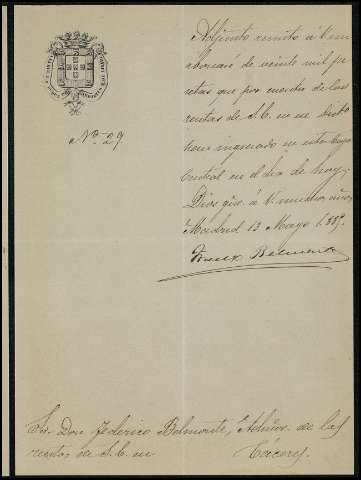 Nº 29.
Adjunto remito á V. un
abonaré de veinte mil pe
setas que por cuenta de las
rentas de S. E. en su distri
ingresado en esta Caja
Central en el dia de hoy.
Dios gue á V. muchos años
Madrid 13 Mayo 1889
Sr. Don Federico Belmonte, Admor. de las
rentas de S. E. en Cáceres.